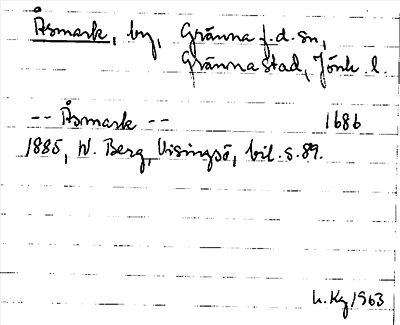 Åsmark, by, Gränna f.d. sn,
Gränna stad, Jönk. l.
-- Åsmark -- 1686
1885, W. Berg, Visingsö, bil. s. 89.
L. Kg 1963